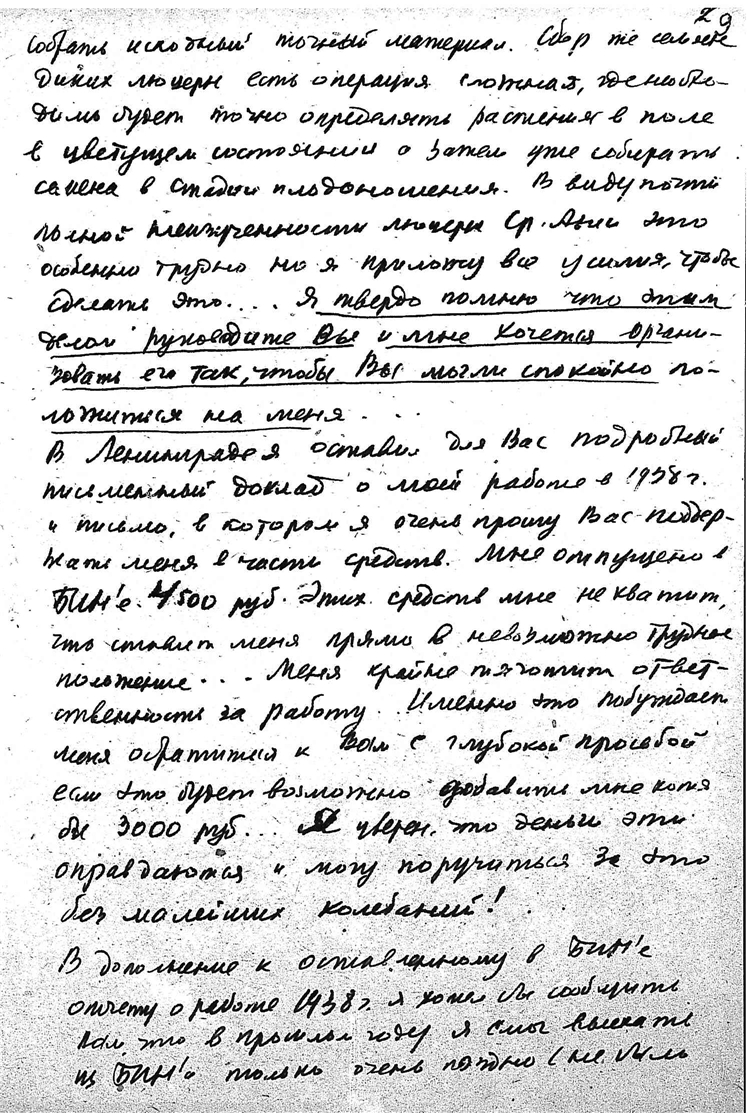 29
собрать исходный точный материал. Сбор же семян
диких люцерн есть операция сложная, где необхо-
димо будет точно определять растения в поле
в цветущем состоянии а затем уже собирать
семена в стадии плодоношения. В виду почти
полной неизученности люцерн Ср. Азии это
особенно трудно но я приложу все усилия, чтобы
сделать это.... Я твердо помню что этим
делом руководите Вы и мне хочется органи-
зовать его так, чтобы Вы могли спокойно по-
ложиться на меня ...
В Ленинграде я оставил для Вас подробный
письменный доклад о моей работе в 1938 г.
и письмо, в котором я очень прошу Вас поддер-
жать меня в части средств. Мне отпущено в
БИН'е 4500 руб. Этих средств мне не хватит,
что ставит меня прямо в невозможно трудное
положение... Меня крайне тяготит ответ-
ственность за работу. Именно это побуждает
меня обратиться к Вам с глубокой просьбой
если это будет возможно добавить мне хотя
бы 3000 руб... Я уверен что деньги эти
оправдаются и могу поручиться за это
без малейших колебаний!
В дополнение к оставленному в БИН'е
отчету о работе 1938 г. я хотел бы сообщить
Вам что в прошлом году я смог выехать
из БИН'а только очень поздно (не было